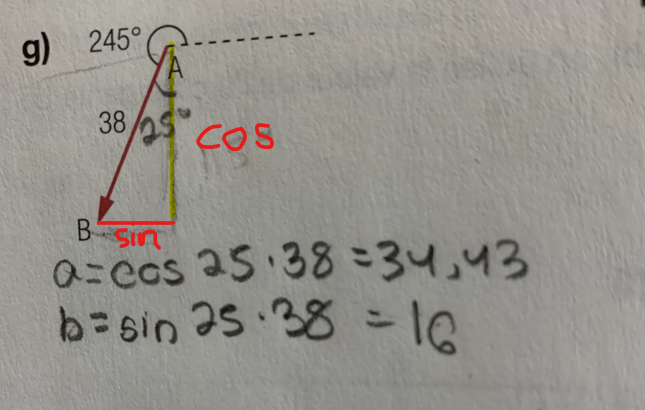 g) 245°
A
38 25° cos
B sin
a=cos 25·38=34,43
b=sin 25·38 =16